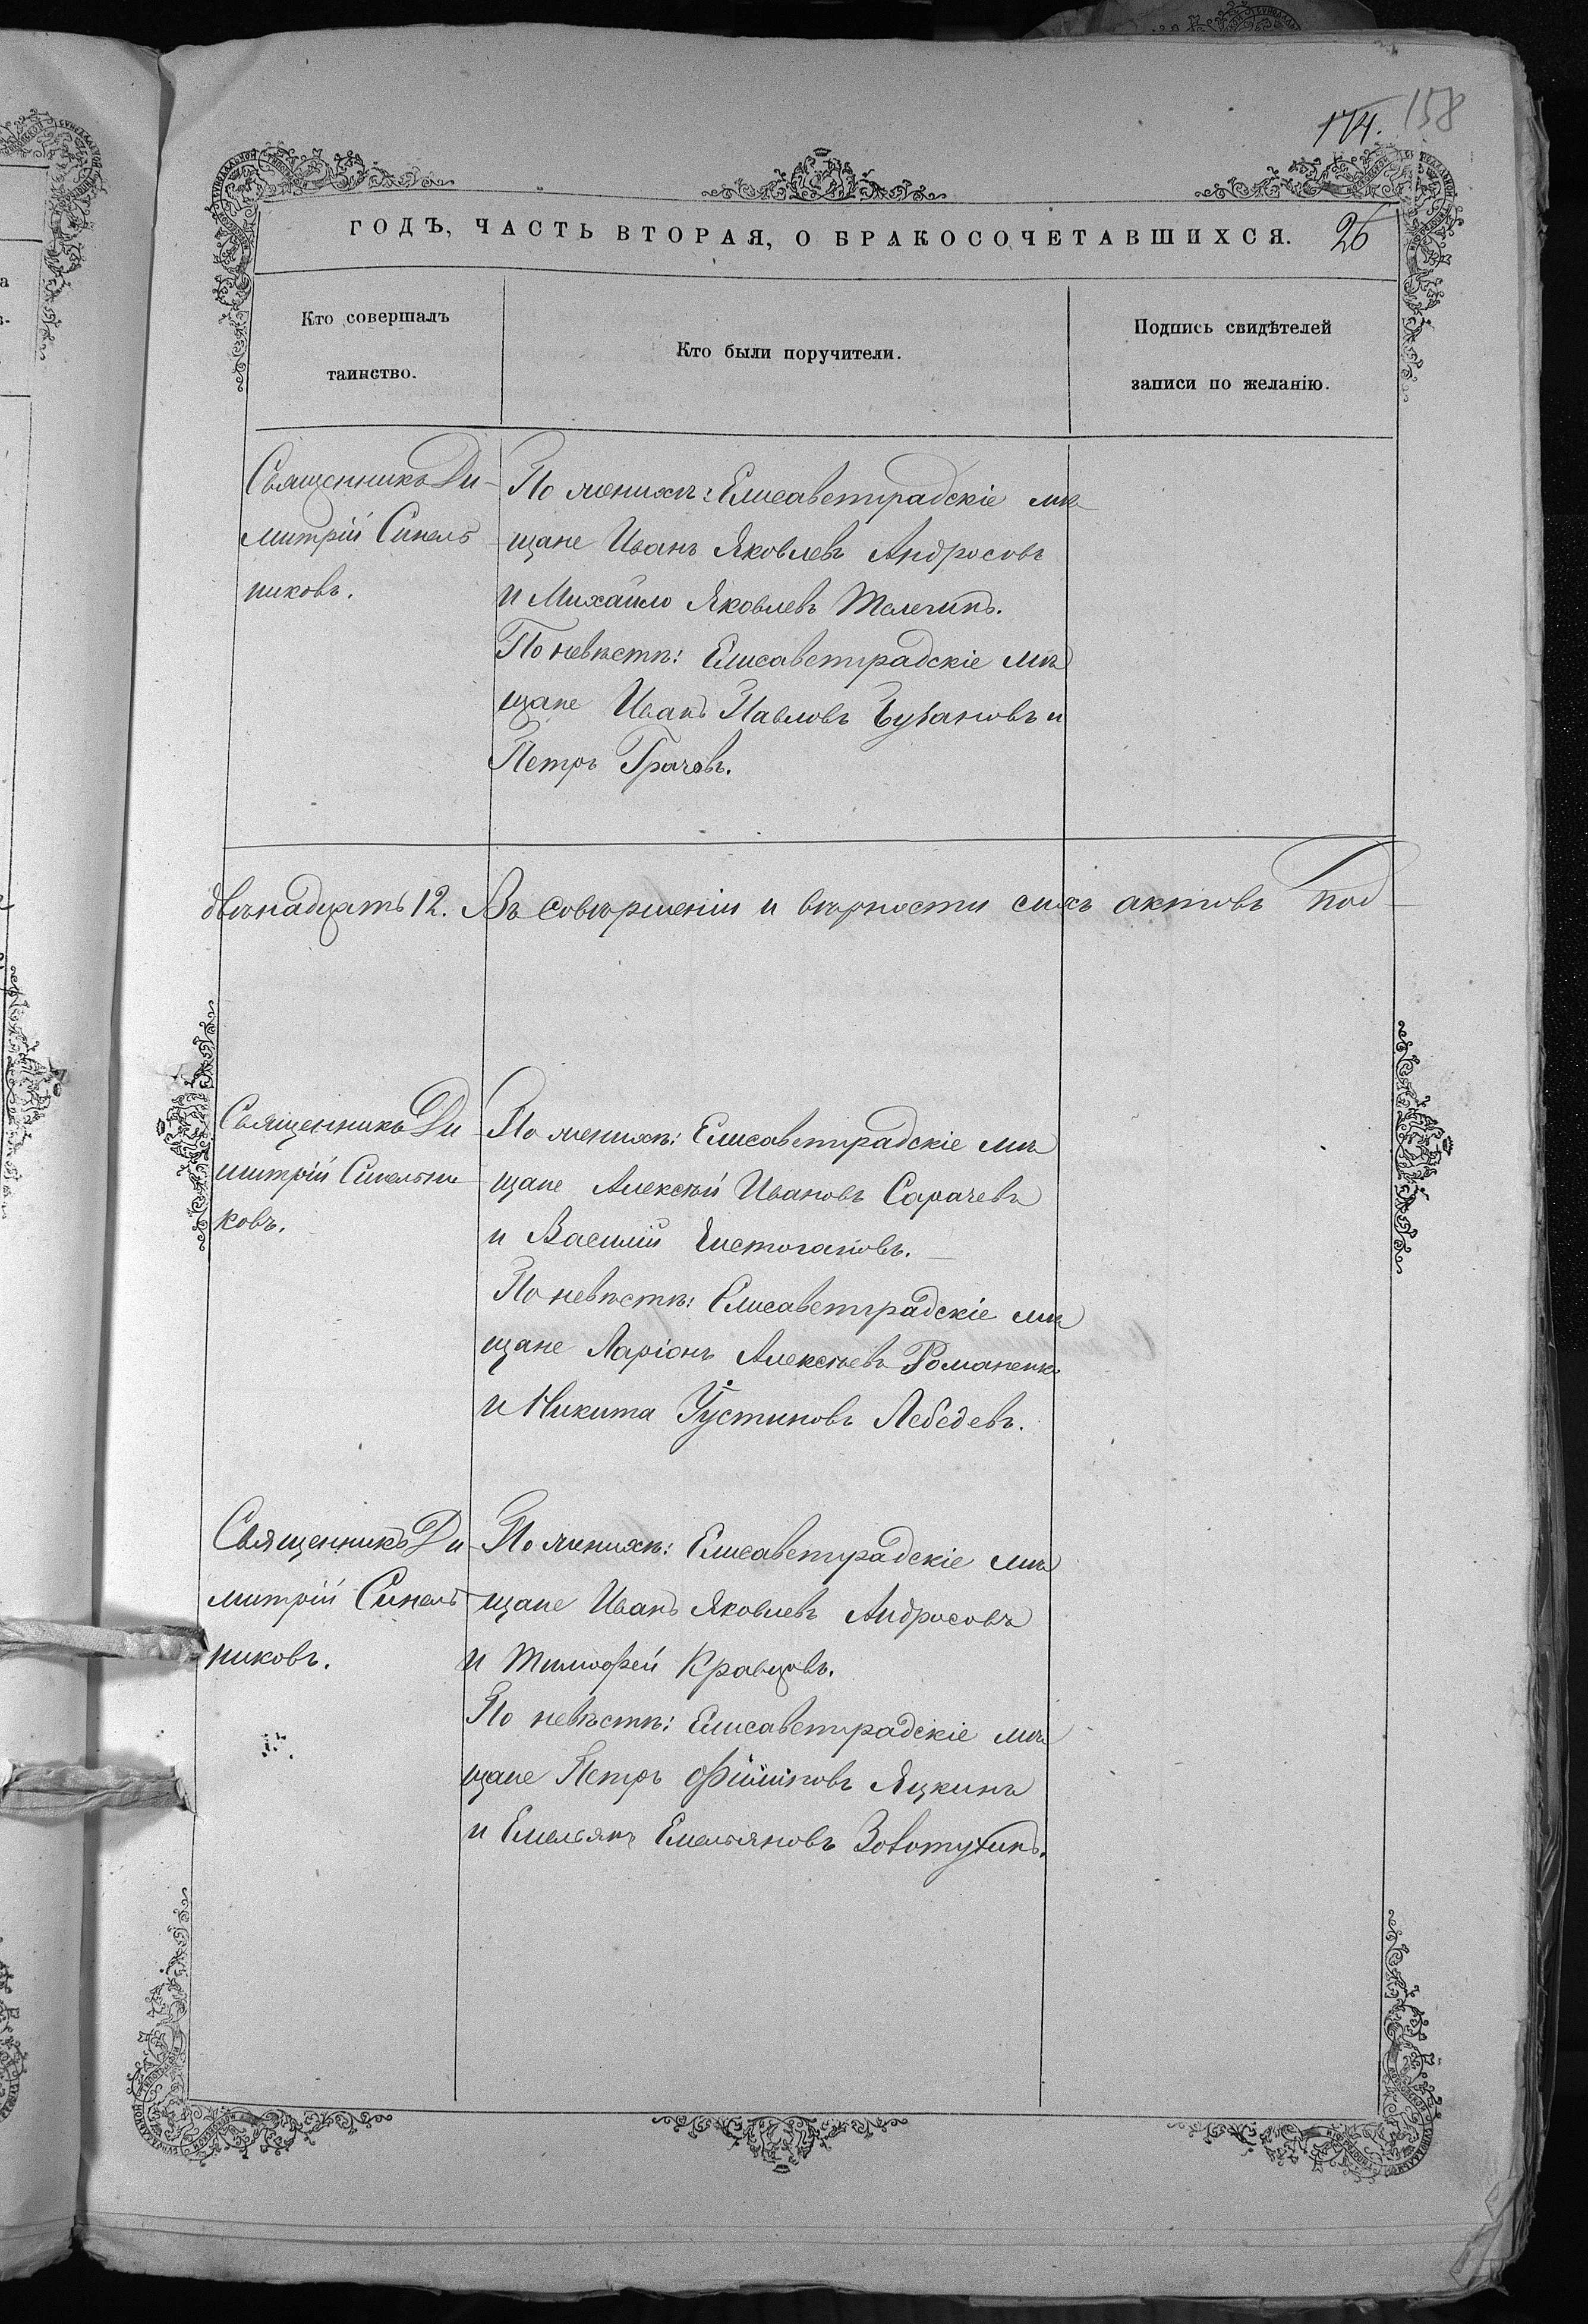 174. 158
ГОДЪ, ЧАСТЬ ВТОРАЯ, О БРАКОСОЧЕТАВШИХСЯ. 26
Кто совершалъ
таинство.
Кто были поручители.
Подпись свидѣтелей
записи по желанію.
Священникъ Ди-
митрій Синель
никовъ.
По женихѣ: Елисаветградскіе мѣ
щане Иванъ Яковлевъ Андросовъ
и Михайло Яковлевъ Телегинъ.
По невѣстѣ: Елисаветградскіе мѣ
щане Иванъ Павловъ и
Петръ Грачовъ.
двѣнадцать 12. Въ совершеніи и вѣрности сихъ актовъ под-
Священникъ Ди
митрій Синельни
ковъ.
По женихѣ: Елисаветградскіе мѣ
щане Алексѣй Ивановъ Сарачевъ
и Василій
По невѣстѣ: Елисаветградскіе мѣ
щане Ларіонъ Алексѣевъ Романенко
и Никита Устиновъ Лебедевъ.
Священникъ Ди
митрій Синель
никовъ.
По женихѣ: Елисаветградскіе мѣ
щане Иванъ Яковлевъ Андросовъ
и Тимофей Кравцовъ.
По невѣстѣ: Елисаветградскіе мѣ
щане Петръ Яцкинъ
и Емельянъ Емельяновъ